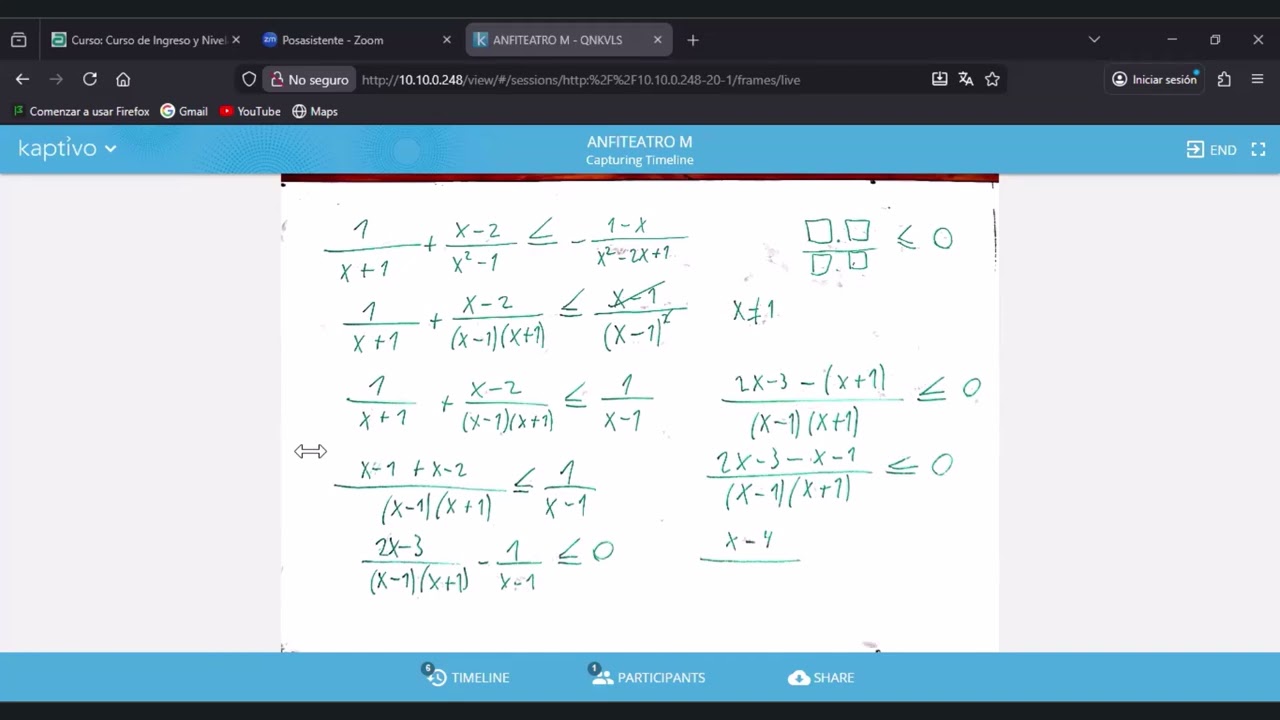 Curso: Curso de Ingreso y Nivel
Posasistente - Zoom
ANFITEATRO M - QNKVLS
No seguro
http://10.10.0.248/view/#/sessions/http:%2F%2F10.10.0.248-20-1/frames/live
Iniciar sesión
Comenzar a usar Firefox
Gmail
YouTube
Maps
kaptivo
ANFITEATRO M
Capturing Timeline
END
1/(x+1) + (x-2)/(x²-1) ≤ -(1-x)/(x²-2x+1)
□.□/□.□ ≤ 0
1/(x+1) + (x-2)/((x-1)(x+1)) ≤ (x-1)/(x-1)²
x≠1
1/(x+1) + (x-2)/((x-1)(x+1)) ≤ 1/(x-1)
(x-1+x-2)/((x-1)(x+1)) ≤ 1/(x-1)
(2x-3)/((x-1)(x+1)) - 1/(x-1) ≤ 0
(2x-3-(x+1))/((x-1)(x+1)) ≤ 0
(2x-3-x-1)/((x-1)(x+1)) ≤ 0
x-4
5
TIMELINE
1
PARTICIPANTS
SHARE